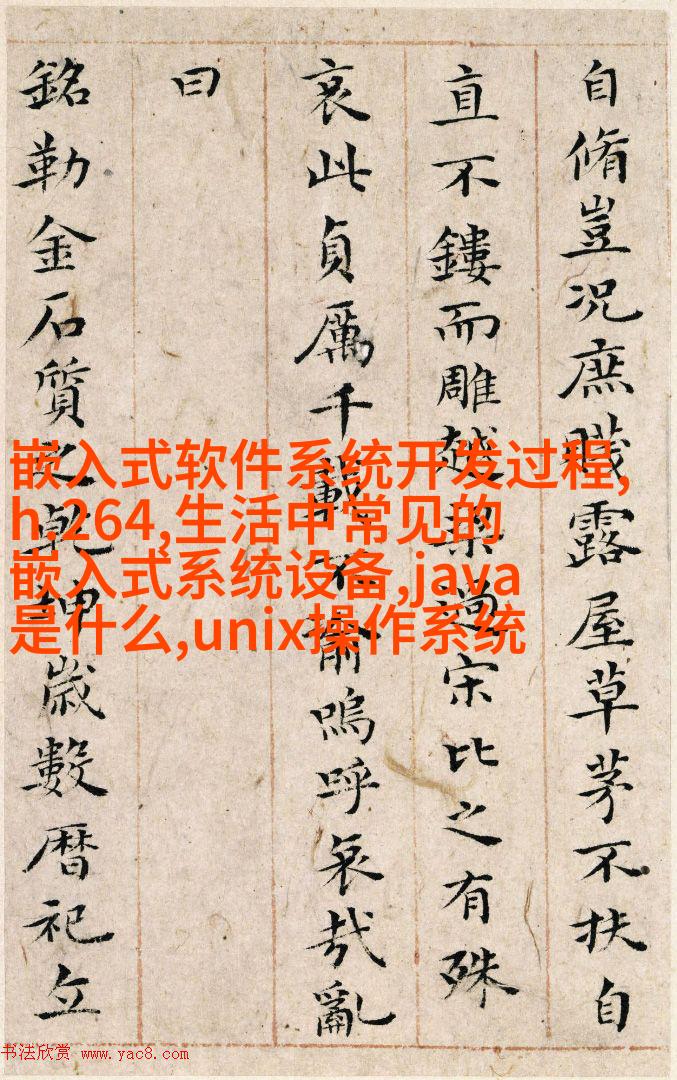 自脩豈況庶賤露屋草茅不扶自
直不鏤而雕越梁過宋比之有殊
哀此貞厲千載不渝嗚呼哀哉亂
曰
銘勒金石質之乾坤歲數暦祀立
嵌入式软件系统开发过程,
h.264,生活中常见的
嵌入式系统设备,java
是什么,unix操作系统
书法欣赏 www.yac8.com